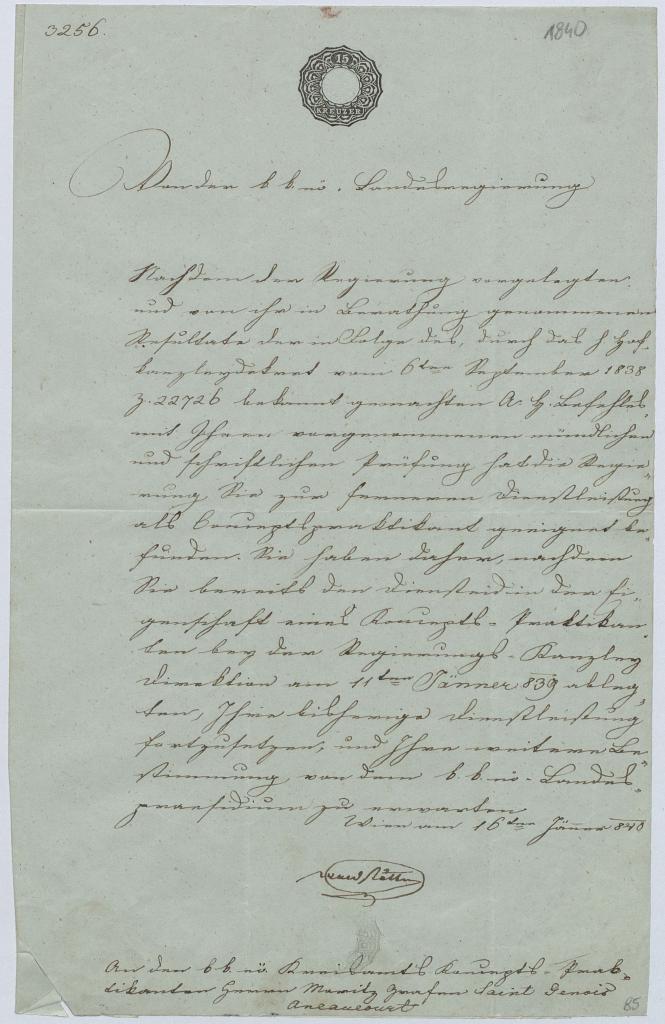 3256.
1840
15
KREUZER
Von der k. k. nö. Landesregierung
Nachdem der Regierung vorgelegten
und von ihr in Berathung genommenen
Resultate der in Folge des, durch das h Hof-
kanzleydekret vom 6ten September 1838
Z. 22726 bekannt gemachten A. H. Befehles
mit Ihnen vorgenommenen mündlichen
und schriftlichen Prüfung hat die Regie-
rung Sie zur ferneren Dienstleistung
als Conceptspraktikant geeignet be-
funden. Sie haben daher, nachdem
Sie bereits den Diensteid in der Ei-
genschaft eines Konzepts-Praktikan-
ten bey der Regierungs-Kanzley
Direktion am 11ten Jänner 839 ableg-
ten, Ihre bisherige Dienstleistung
fortzusetzen, und Ihre weitere Be-
stimmung von dem k. k. nö. Landes-
praesidium zu erwarten
Wien am 16ten Jänner 840
An den k k. nö. Kreisamts Konzepts-Prak-
tikanten Herrn Moritz Grafen Saint Genois
Aneaucourt
85